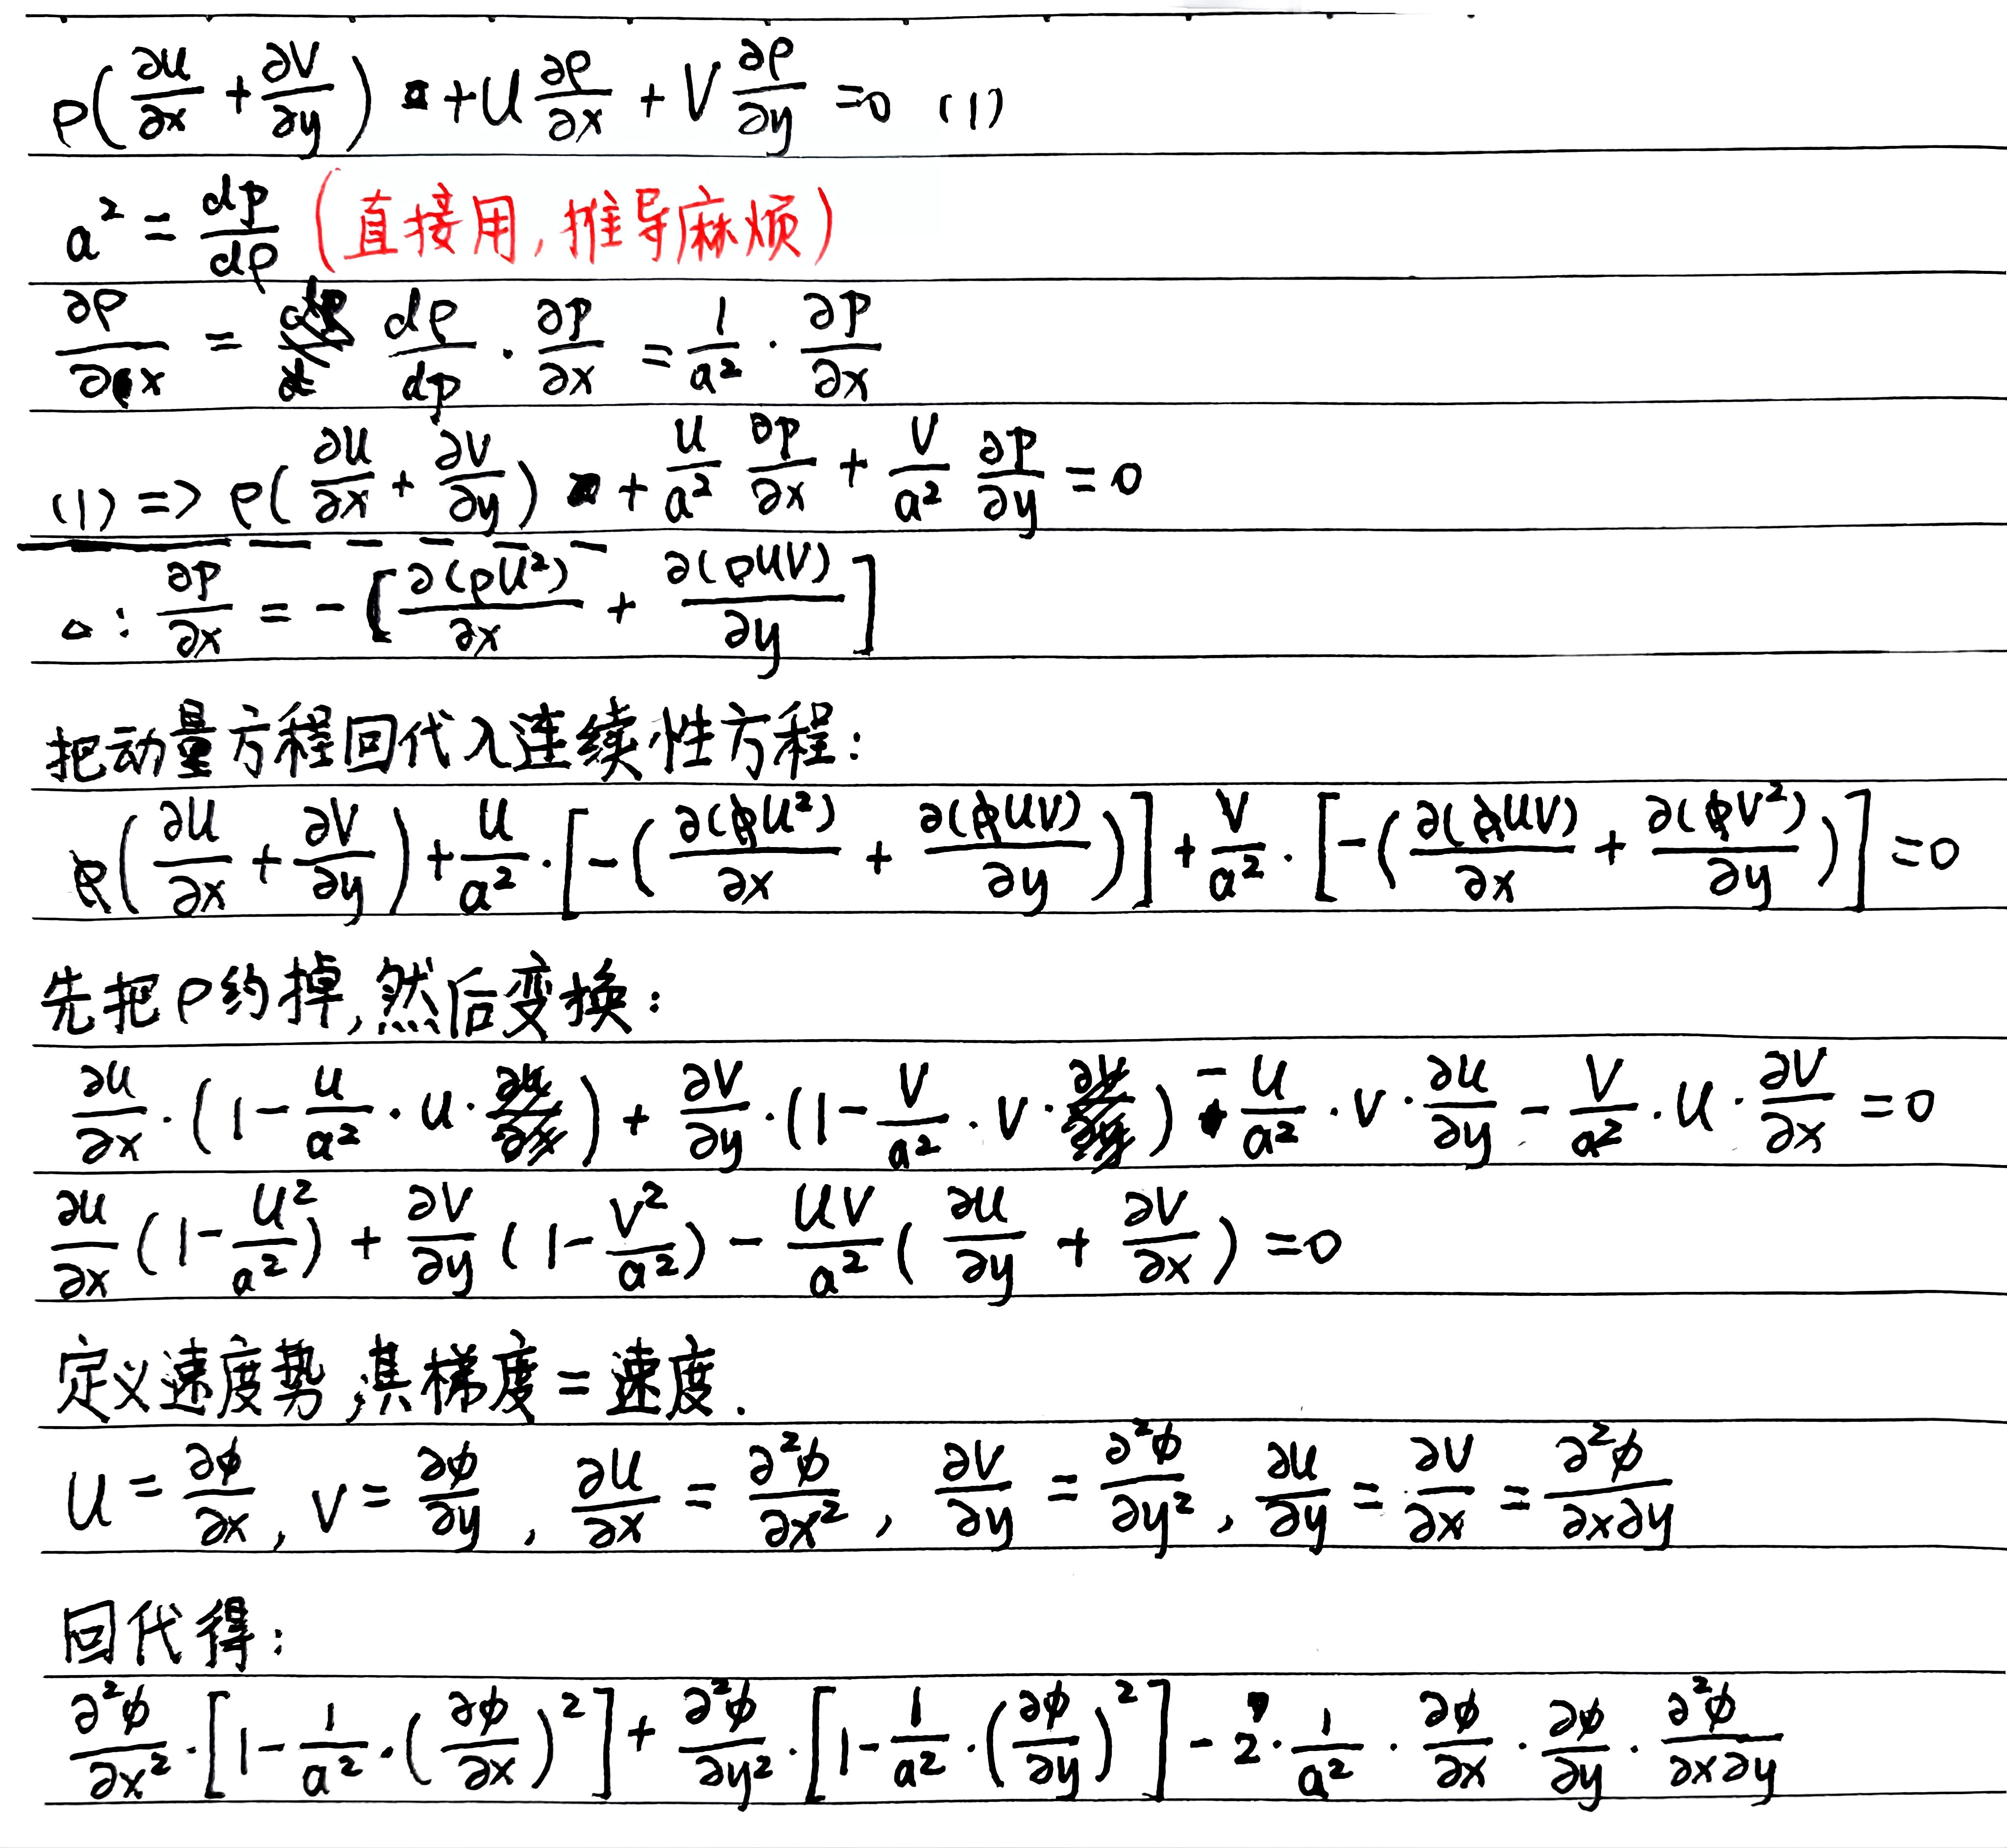 ρ(∂u/∂x + ∂V/∂y) + U ∂ρ/∂x + V ∂ρ/∂y = 0 (1)
a² = dp/dρ (直接用,推导麻烦)
∂ρ/∂x = dρ/dp · ∂p/∂x = 1/a² · ∂p/∂x
(1) => ρ(∂u/∂x + ∂V/∂y) + u/a² ∂p/∂x + V/a² ∂p/∂y = 0
∵ ∂p/∂x = -[∂(ρu²)/∂x + ∂(ρuv)/∂y]
把动量方程回代入连续性方程:
ρ(∂u/∂x + ∂V/∂y) + u/a² · [-(∂(ρu²)/∂x + ∂(ρuv)/∂y)] + V/a² · [-(∂(ρuv)/∂x + ∂(ρv²)/∂y)] = 0
先把ρ约掉,然后变换:
∂u/∂x · (1 - u/a² · u) + ∂V/∂y · (1 - V/a² · V) - u/a² · V · ∂u/∂y - V/a² · u · ∂V/∂x = 0
∂u/∂x (1 - u²/a²) + ∂V/∂y (1 - V²/a²) - uV/a² (∂u/∂y + ∂V/∂x) = 0
定义速度势,其梯度=速度.
U = ∂φ/∂x, V = ∂φ/∂y, ∂u/∂x = ∂²φ/∂x², ∂V/∂y = ∂²φ/∂y², ∂u/∂y = ∂V/∂x = ∂²φ/∂x∂y
回代得:
∂²φ/∂x² · [1 - 1/a² · (∂φ/∂x)²] + ∂²φ/∂y² · [1 - 1/a² · (∂φ/∂y)²] - 2 · 1/a² · ∂φ/∂x · ∂φ/∂y · ∂²φ/∂x∂y